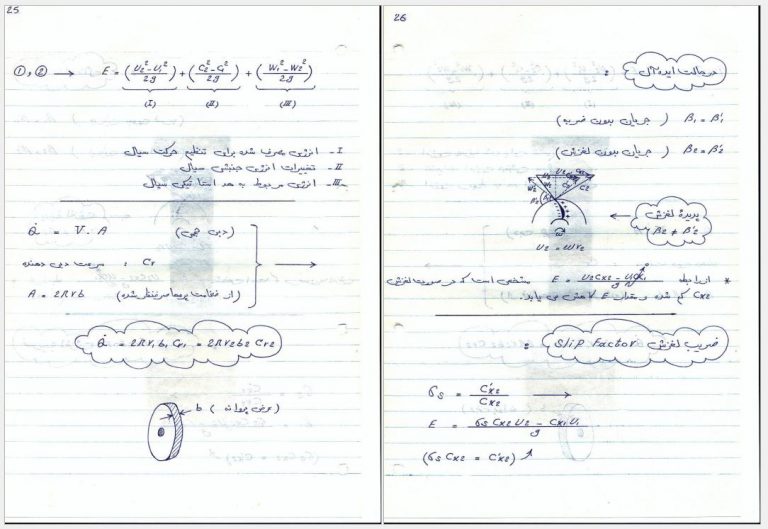 25
①, ② → E = (U₂² - U₁² / 2g) + (C₂² - C₁² / 2g) + (W₁² - W₂² / 2g)
(I) (II) (III)
I - انرژی مصرف شده برای تنظیم حرکت سیال
II - تغییرات انرژی جنبشی سیال
III - انرژی مربوط به هد استاتیکی سیال
Q̇ = V . A (دبی حجمی)
Cr : سرعت دبی دهنده →
A = 2πrb (از ضخامت پره‌ها صرفنظر شده)
Q̇ = 2πr₁b₁Cr₁ = 2πr₂b₂Cr₂
b (عرض پروانه)
26
در حالت ایده‌آل :
β₁ = β'₁ (جریان بدون ضربه)
β₂ = β'₂ (جریان بدون لغزش)
پدیده لغزش
β₂ ≠ β'₂
U₂ = ωr₂
* از رابطه E = U₂Cx₂ - U₁Cx₁ / g مشخص است که در صورت لغزش
Cx₂ کم شده و مقدار E کاهش می یابد.
ضریب لغزش Slip Factor :
σs = C'x₂ / Cx₂ →
E = σs Cx₂ U₂ - Cx₁ U₁ / g
(σs Cx₂ = C'x₂)